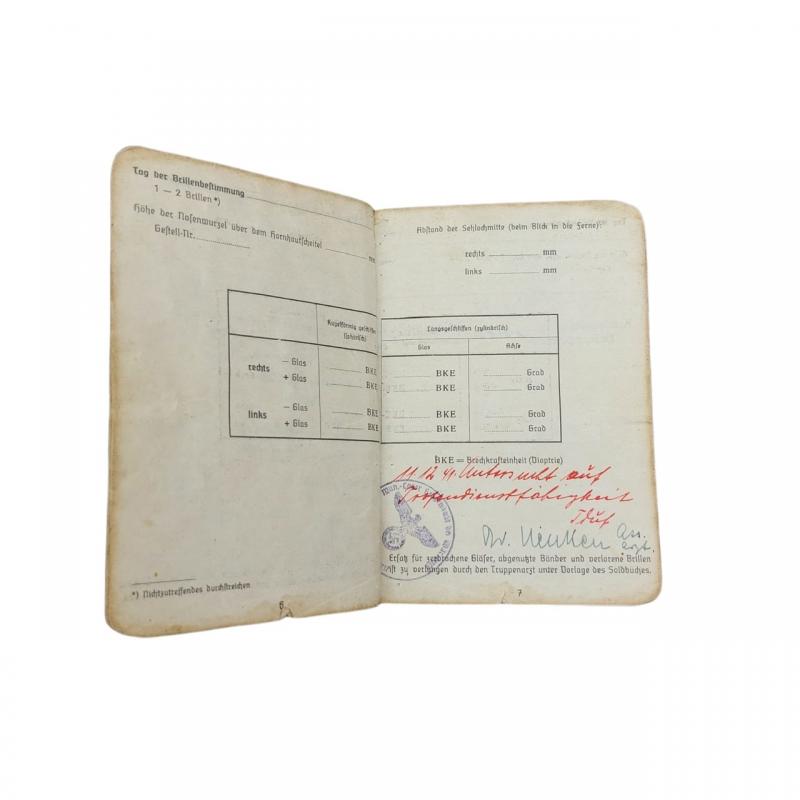 Tag der Brillenbestimmung
1 — 2 Brillen*)
Höhe der Nasenwurzel über dem Hornhautscheitel mm
Gestell-Nr.
Kugelförmig geschliffen
(sphärisch)
rechts
— Glas BKE
+ Glas BKE
links
— Glas BKE
+ Glas BKE
*) Nichtzutreffendes durchstreichen
6
Abstand der Sehlochmitte (beim Blick in die Ferne):
rechts mm
links mm
Längsgeschliffen (zylindrisch)
Glas Achse
BKE Grad
BKE Grad
BKE Grad
BKE Grad
BKE = Brechkrafteinheit (Dioptrie)
11.12.41. Untersucht auf
Tropendienstfähigkeit
Dr.
Ass.
arzt.
Ersatz für zerbrochene Gläser, abgenutzte Bänder und verlorene Brillen
ist zu verlangen durch den Truppenarzt unter Vorlage des Soldbuches.
7